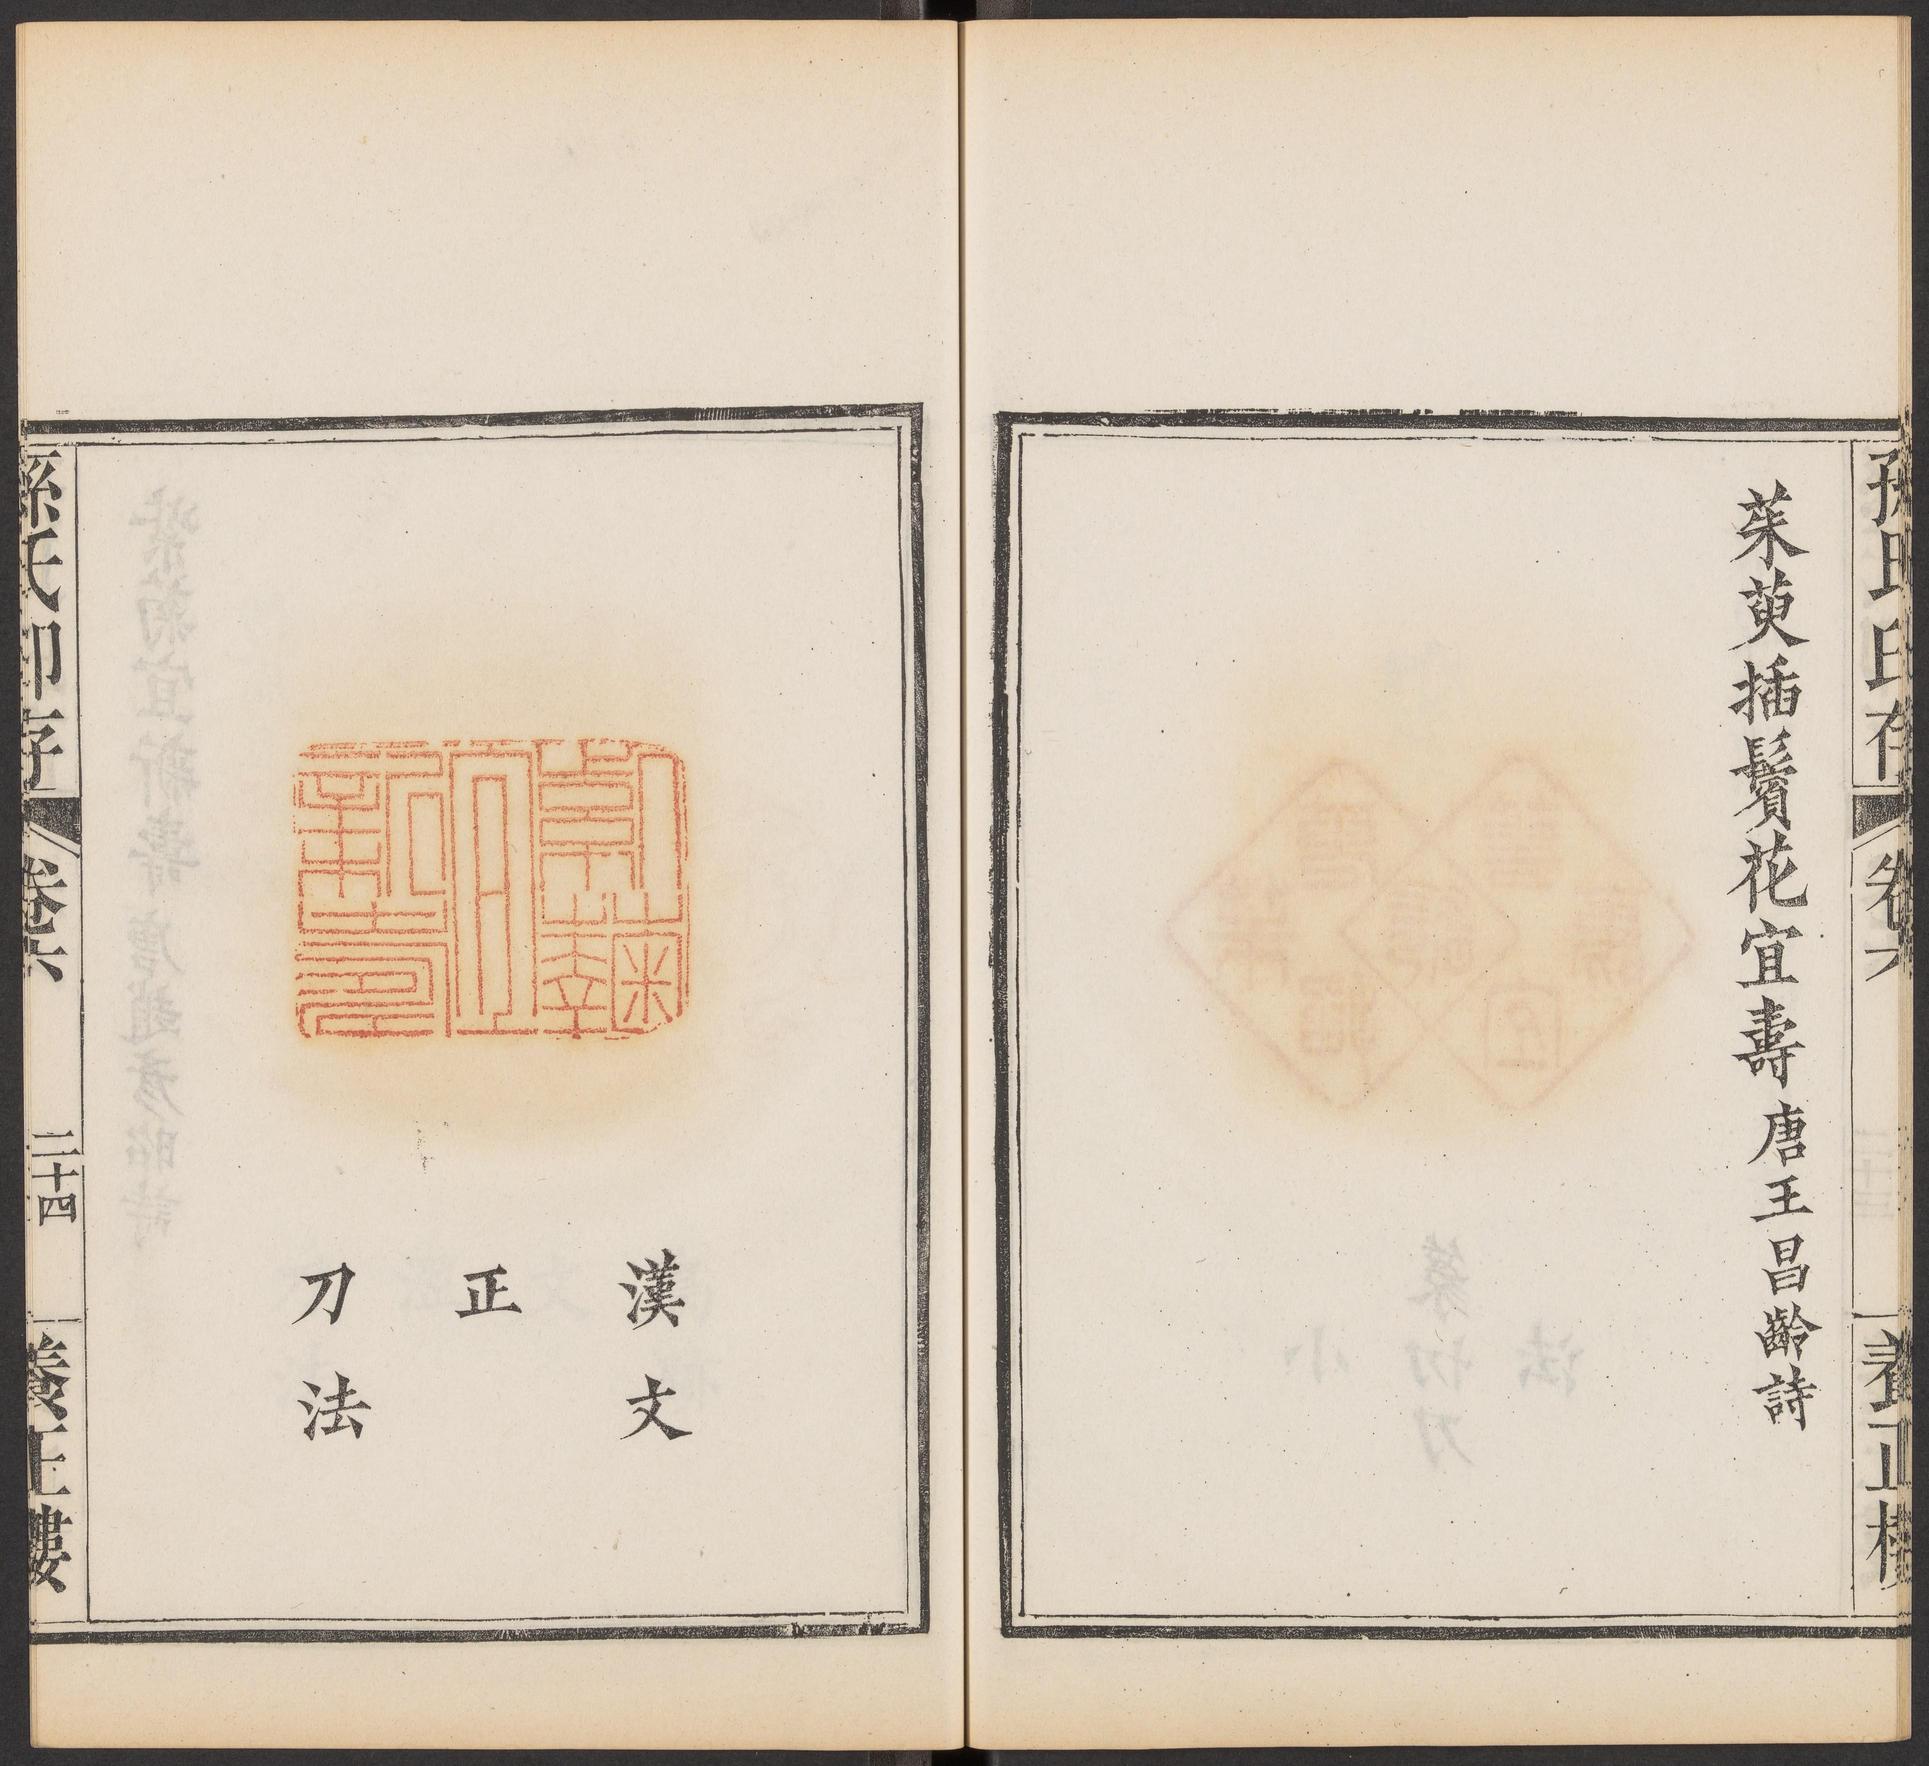 孫氏印存
卷六
養正樓
茱萸插鬢花宜壽 唐王昌齡詩
漢文
正
刀法
孫氏印存
卷六
二十四
養正樓